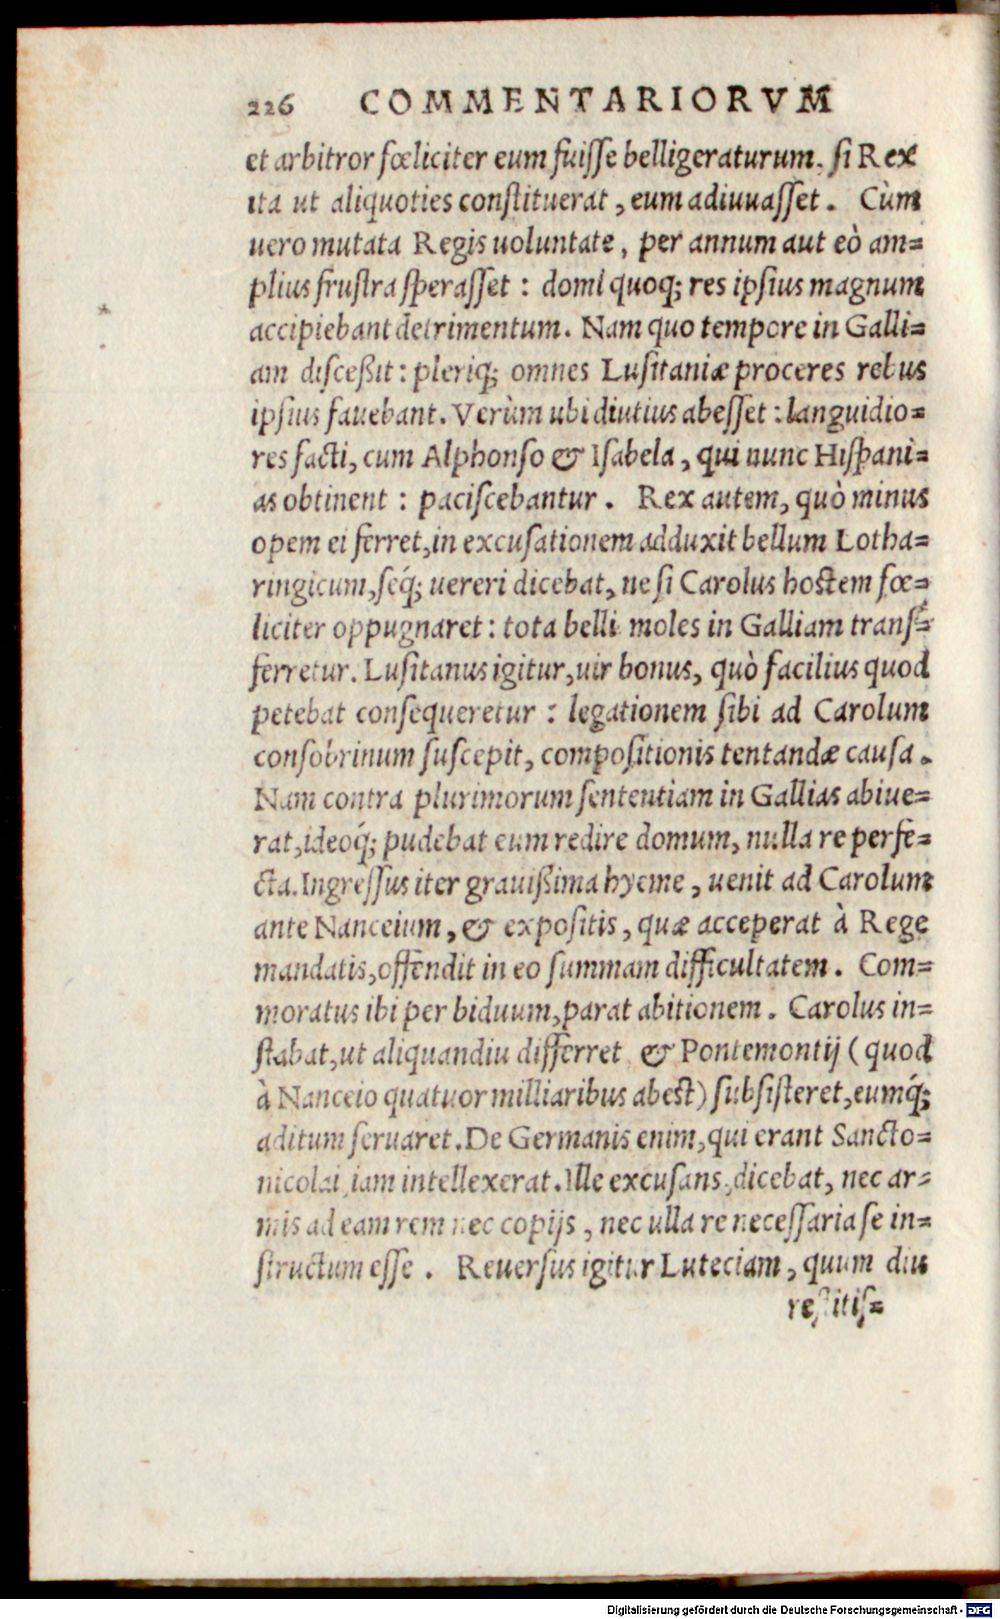 226 COMMENTARIORVM
et arbitror fœliciter eum fuisse belligeraturum. si Rex
ita ut aliquoties constituerat, eum adiuuasset. Cùm
uero mutata Regis uoluntate, per annum aut eò am=
plius frustra sperasset : domi quoq; res ipsius magnum
accipiebant detrimentum. Nam quo tempore in Galli=
am disceßit : pleriq; omnes Lusitaniæ proceres rebus
ipsius fauebant. Verùm ubi diutius abesset : languidio=
res facti, cum Alphonso & Isabela, qui nunc Hispani=
as obtinent : paciscebantur. Rex autem, quò minus
opem ei ferret, in excusationem adduxit bellum Lotha=
ringicum, seq́; uereri dicebat, ne si Carolus hostem fœ=
liciter oppugnaret : tota belli moles in Galliam trans=
ferretur. Lusitanus igitur, uir bonus, quò facilius quod
petebat consequeretur : legationem sibi ad Carolum
consobrinum suscepit, compositionis tentandæ causa.
Nam contra plurimorum sententiam in Gallias abiue=
rat, ideoq́; pudebat eum redire domum, nulla re perfe=
cta. Ingressus iter grauißima hyeme, uenit ad Carolum
ante Nanceium, & expositis, quæ acceperat à Rege
mandatis, offendit in eo summam difficultatem. Com=
moratus ibi per biduum, parat abitionem. Carolus in=
stabat, ut aliquandiu differret & Pontemontij (quod
à Nanceio quatuor milliaribus abest) subsisteret, eumq́;
aditum seruaret. De Germanis enim, qui erant Sancto=
nicolai iam intellexerat. Ille excusans, dicebat, nec ar=
mis ad eam rem nec copijs, nec ulla re necessaria se in=
structum esse. Reuersus igitur Luteciam, quum diu
restitis=
Digitalisierung gefördert durch die Deutsche Forschungsgemeinschaft - DFG